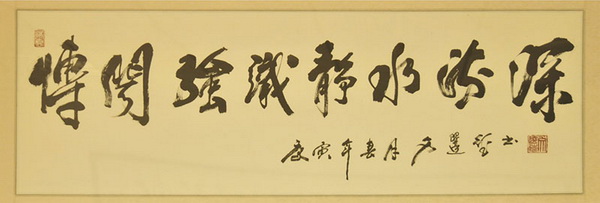 博闻強識静水流深
庚寅年春月 书